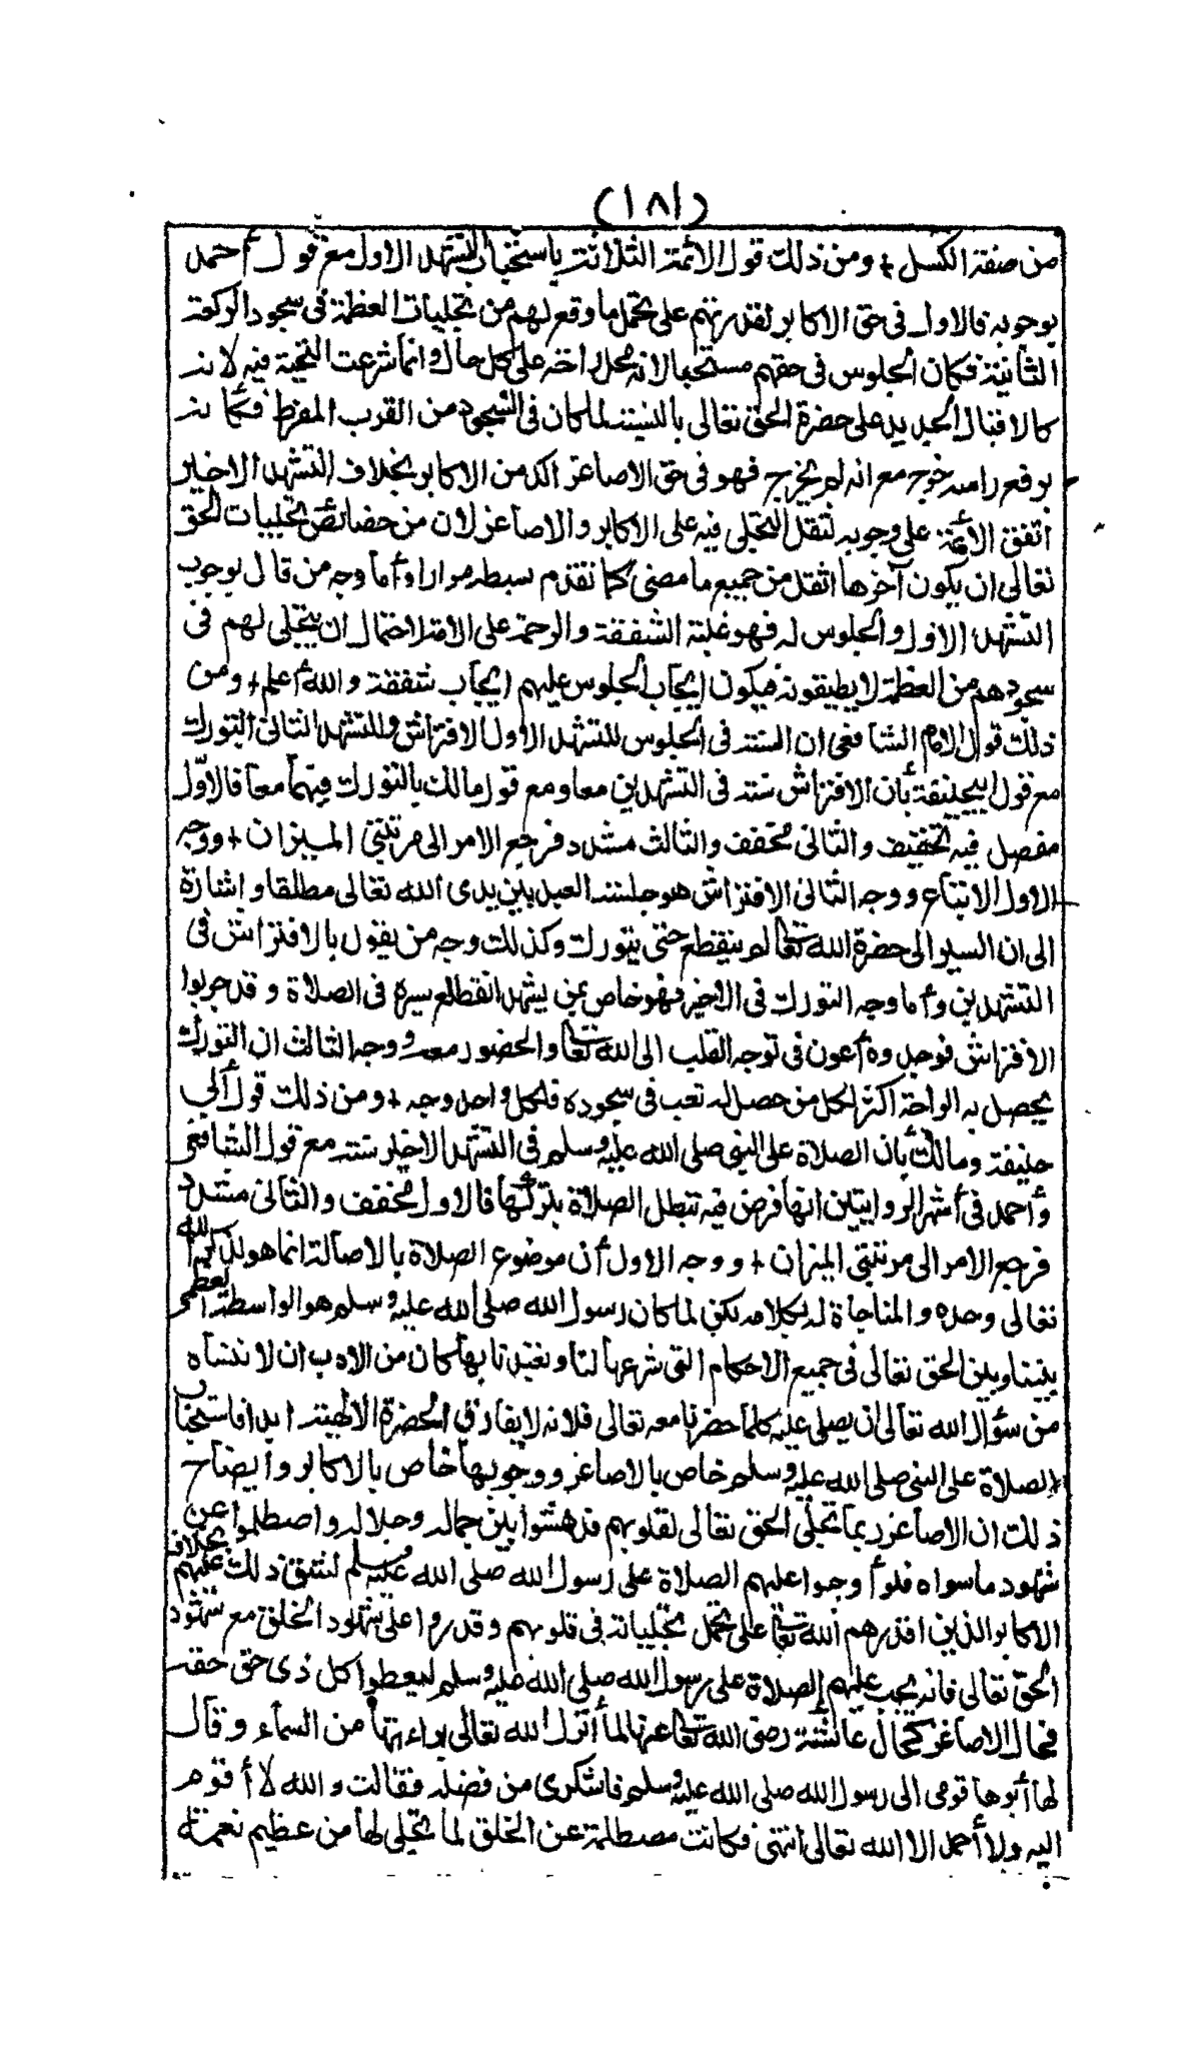 (١٨١)
من صفة الكسل + ومن ذلك قول الأئمة الثلاثة باستحباب التشهد الاول مع قول أحمد
بوجوبه فالاول في حق الاكابر لقدرتهم على تحمل ما وقع لهم من تجليات العظمة في سجود الركعة
الثانية فكان الجلوس في حقهم مستحبا لانه محل راحة على كل حال وانما شرعت التحية فيه لانه
كالاقبال الجديد على حضرة الحق تعالى بالنسبة لما كان في السجود من القرب المفرط فكأنه
برفع راسه خرج مع انه لم يخرج فهو في حق الاصاغر اكد من الاكابر بخلاف التشهد الاخير
اتفق الأئمة على وجوبه لثقل التجلى فيه على الاكابر والاصاغر لان من خصائص تجليات الحق
تعالى ان يكون آخرها اثقل من جميع ما مضى كما تقدم بسطه مرارا وأما وجه من قال بوجوب
التشهد الاول والجلوس له فهو غلبة الشفقة والرحمة على الامة لاحتمال ان يتجلى لهم في
سجودهم من العظمة لا يطيقونه فيكون ايجاب الجلوس عليهم ايجاب شفقة والله أعلم + ومن
ذلك قول الامام الشافعى ان السنة في الجلوس للتشهد الاول الافتراش وللتشهد الثانى التورك
مع قول ابيحنيفة بأن الافتراش سنة في التشهدين معا ومع قول مالك بالتورك فيهما معا فالاوّل
مفصل فيه تخفيف والثانى مخفف والثالث مشدد فرجع الامر الى مرتبتي الميزان + ووجه
الاول الاتباع ووجه الثانى الافتراش هو جلسة العبد بين يدى الله تعالى مطلقا واشارة
الى ان السير الى حضرة الله تعالى لم ينقطع حتى يتورك وكذلك وجه من يقول بالافتراش في
التشهدين وأما وجه التورك في الاخير فهو خاص بمن يشهد انقطاع سيره في الصلاة وقد جربوا
الافتراش فوجدوه أعون في توجه القلب الى الله تعالى والحضور معه ووجه الثالث ان التورك
يحصل به الراحة اكثر لكل من حصل له تعب في سجوده فلكل واحد وجه + ومن ذلك قول أبي
حنيفة ومالك بأن الصلاة على النبي صلى الله عليه وسلم في التشهد الاخير سنة مع قول الشافعى
وأحمد في أشهر الروايتين انها فرض فيه تبطل الصلاة بتركها فالاول مخفف والثانى مشدد
فرجع الامر الى مرتبتي الميزان + ووجه الاول أن موضوع الصلاة بالاصالة انما هو لذكر الله
تعالى وحده والمناجاة له بكلامه لكن لما كان رسول الله صلى الله عليه وسلم هو الواسطة العظمى
بيننا وبين الحق تعالى في جميع الاحكام التى شرعها لنا وتعبدنا بها كان من الادب ان لا ننساه
من سؤال الله تعالى ان يصلى عليه كلما حضرنا معه تعالى فلانه لا يفارق الحضرة الالهية ابدا فاستحباب
الصلاة على النبى صلى الله عليه وسلم خاص بالاصاغر ووجوبها خاص بالاكابر وايضاح
ذلك ان الاصاغر ربما تجلى الحق تعالى لقلوبهم فدهشوا بين جماله وجلاله واصطلموا عن
شهود ما سواه فلو أوجبوا عليهم الصلاة على رسول الله صلى الله عليه وسلم لشق ذلك عليهم بخلاف
الاكابر الذين اقدرهم الله تعالى على تحمل تجلياته في قلوبهم وقدروا على شهود الخلق مع شهود
الحق تعالى فانه يجب عليهم الصلاة على رسول الله صلى الله عليه وسلم ليعطوا كل ذى حق حقه
فحال الاصاغر كحال عائشة رضى الله تعالى عنها لما أنزل الله تعالى براءتها من السماء وقال
لها أبوها قومى الى رسول الله صلى الله عليه وسلم فاشكرى من فضله فقالت والله لا أقوم
اليه ولا أحمد الا الله تعالى انتهى فكانت مصطلمة عن الخلق لما تجلى لها من عظيم نعمة